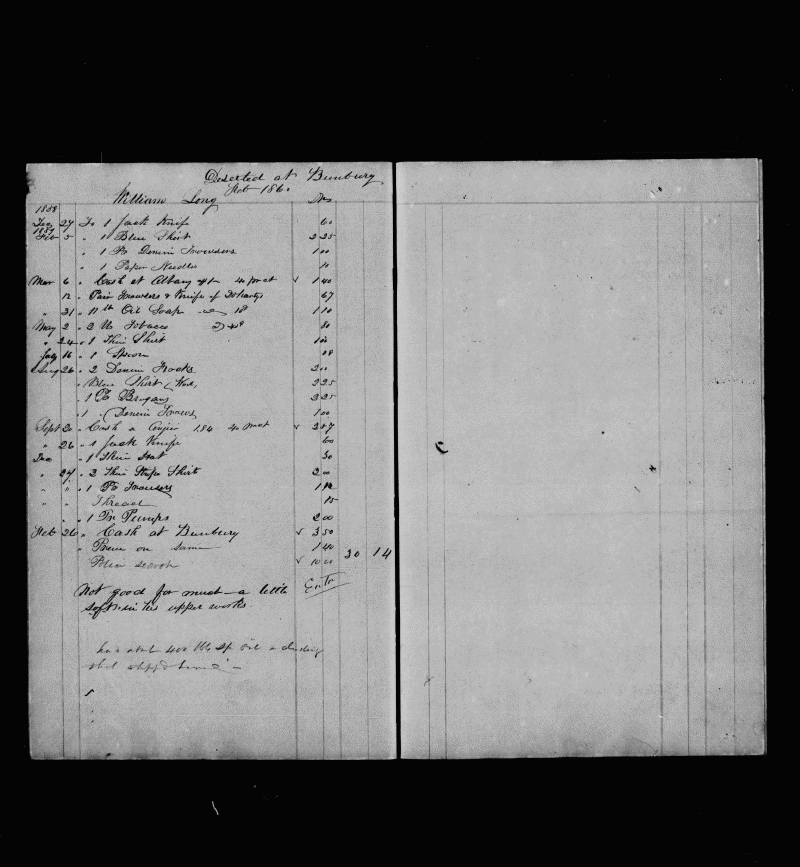 Deserted at Bunbury
Feb 1860
William Long Drs
1858
Dec 27 To 1 Jack Knife 60
1859
Feb 5 " 1 Blue Shirt 2 25
" 1 Pr Denim Trowsers 1 00
" 1 Paper Needles 10
Mar 6 " Cash at Albany 40 pr ct 1 40
12 " Pair Trowsers & Knife of Doharty 67
" 31 " 11 lb Oil Soap 10 1 10
May 2 " 2 lb Tobacco 80
" 24 " 1 Thin Shirt 1 00
July 16 " 1 Spoon 08
Aug 26 " 2 Denim Frocks 2 00
" Blue Shirt 2 25
" 1 Pr Brogans 2 25
" 1 " Denim Trows 1 00
Sept 20 " Cash 40 pr ct 2 87
" 26 " 1 Jack Knife 60
Dec " 1 Thin Hat 50
" 24 " 2 Thin Stripe Shirt 2 00
" " " 1 Pr Trowsers 1 12
" " Thread 15
" " 1 Pr Pumps 2 00
Feb 26 " Cash at Bunbury 3 50
" Prem on same 1 40
Police search 10 00
30 14
Not good for much — a little
soft in his upper works.
had about 400 lbs sp oil